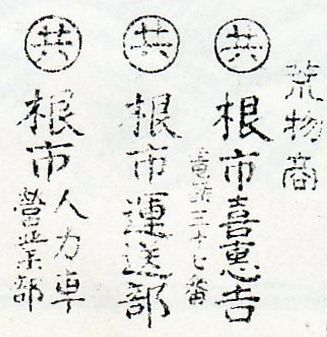 荒物商
共 根市喜惠吉
電話三十七番
共 根市運送部
共 根市人力車
營業部